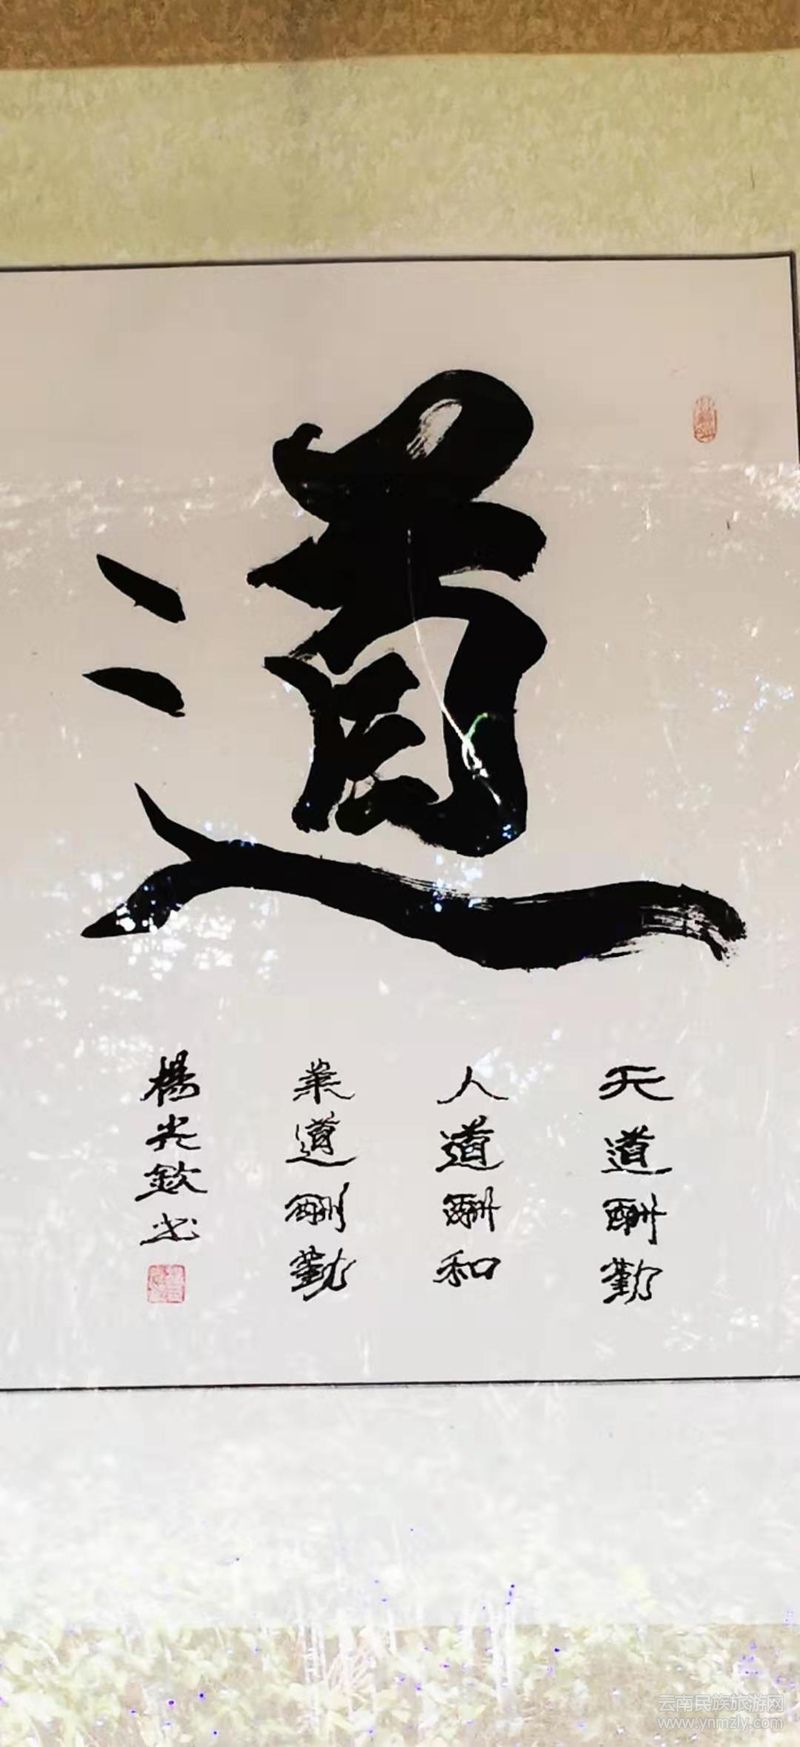 道
天道酬勤
人道酬和
業道酬勤
楊光欽书
云南民族旅游网
www.ynmzly.com